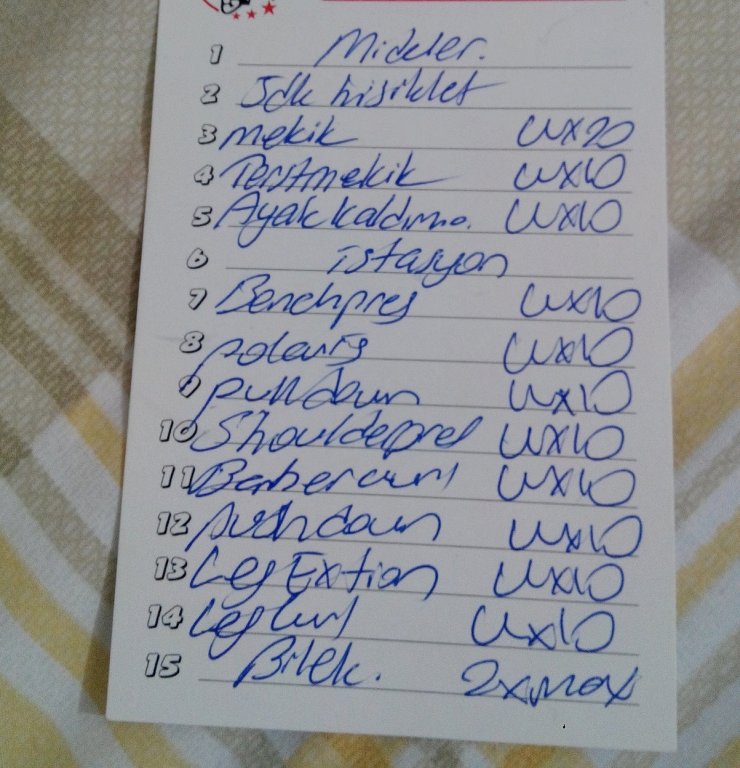 1 Mideler.
2 5dk bisiklet
3 mekik 4x20
4 Tersmekik 4x10
5 Ayak kaldırma. 4x10
6 istasyon
7 Benchpres 4x10
8 polaris 4x10
9 pulldown 4x10
10 Shoulderpres 4x10
11 Barbercurl 4x10
12 pushdown 4x10
13 Leg Extion 4x10
14 Leg Curl 4x10
15 Bilek. 2xmax